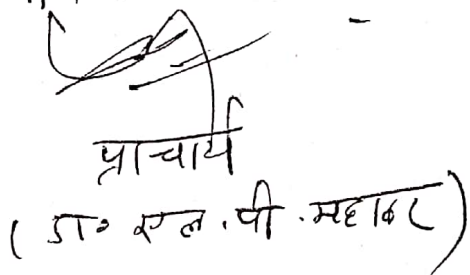 प्राचार्य
( डा० एल. पी. महाकर )